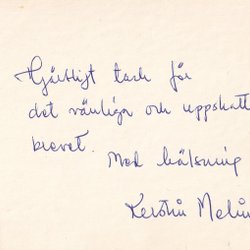 Hjärtligt tack för
det vänliga och uppskatt
brevet.
Med hälsning
Kerstin